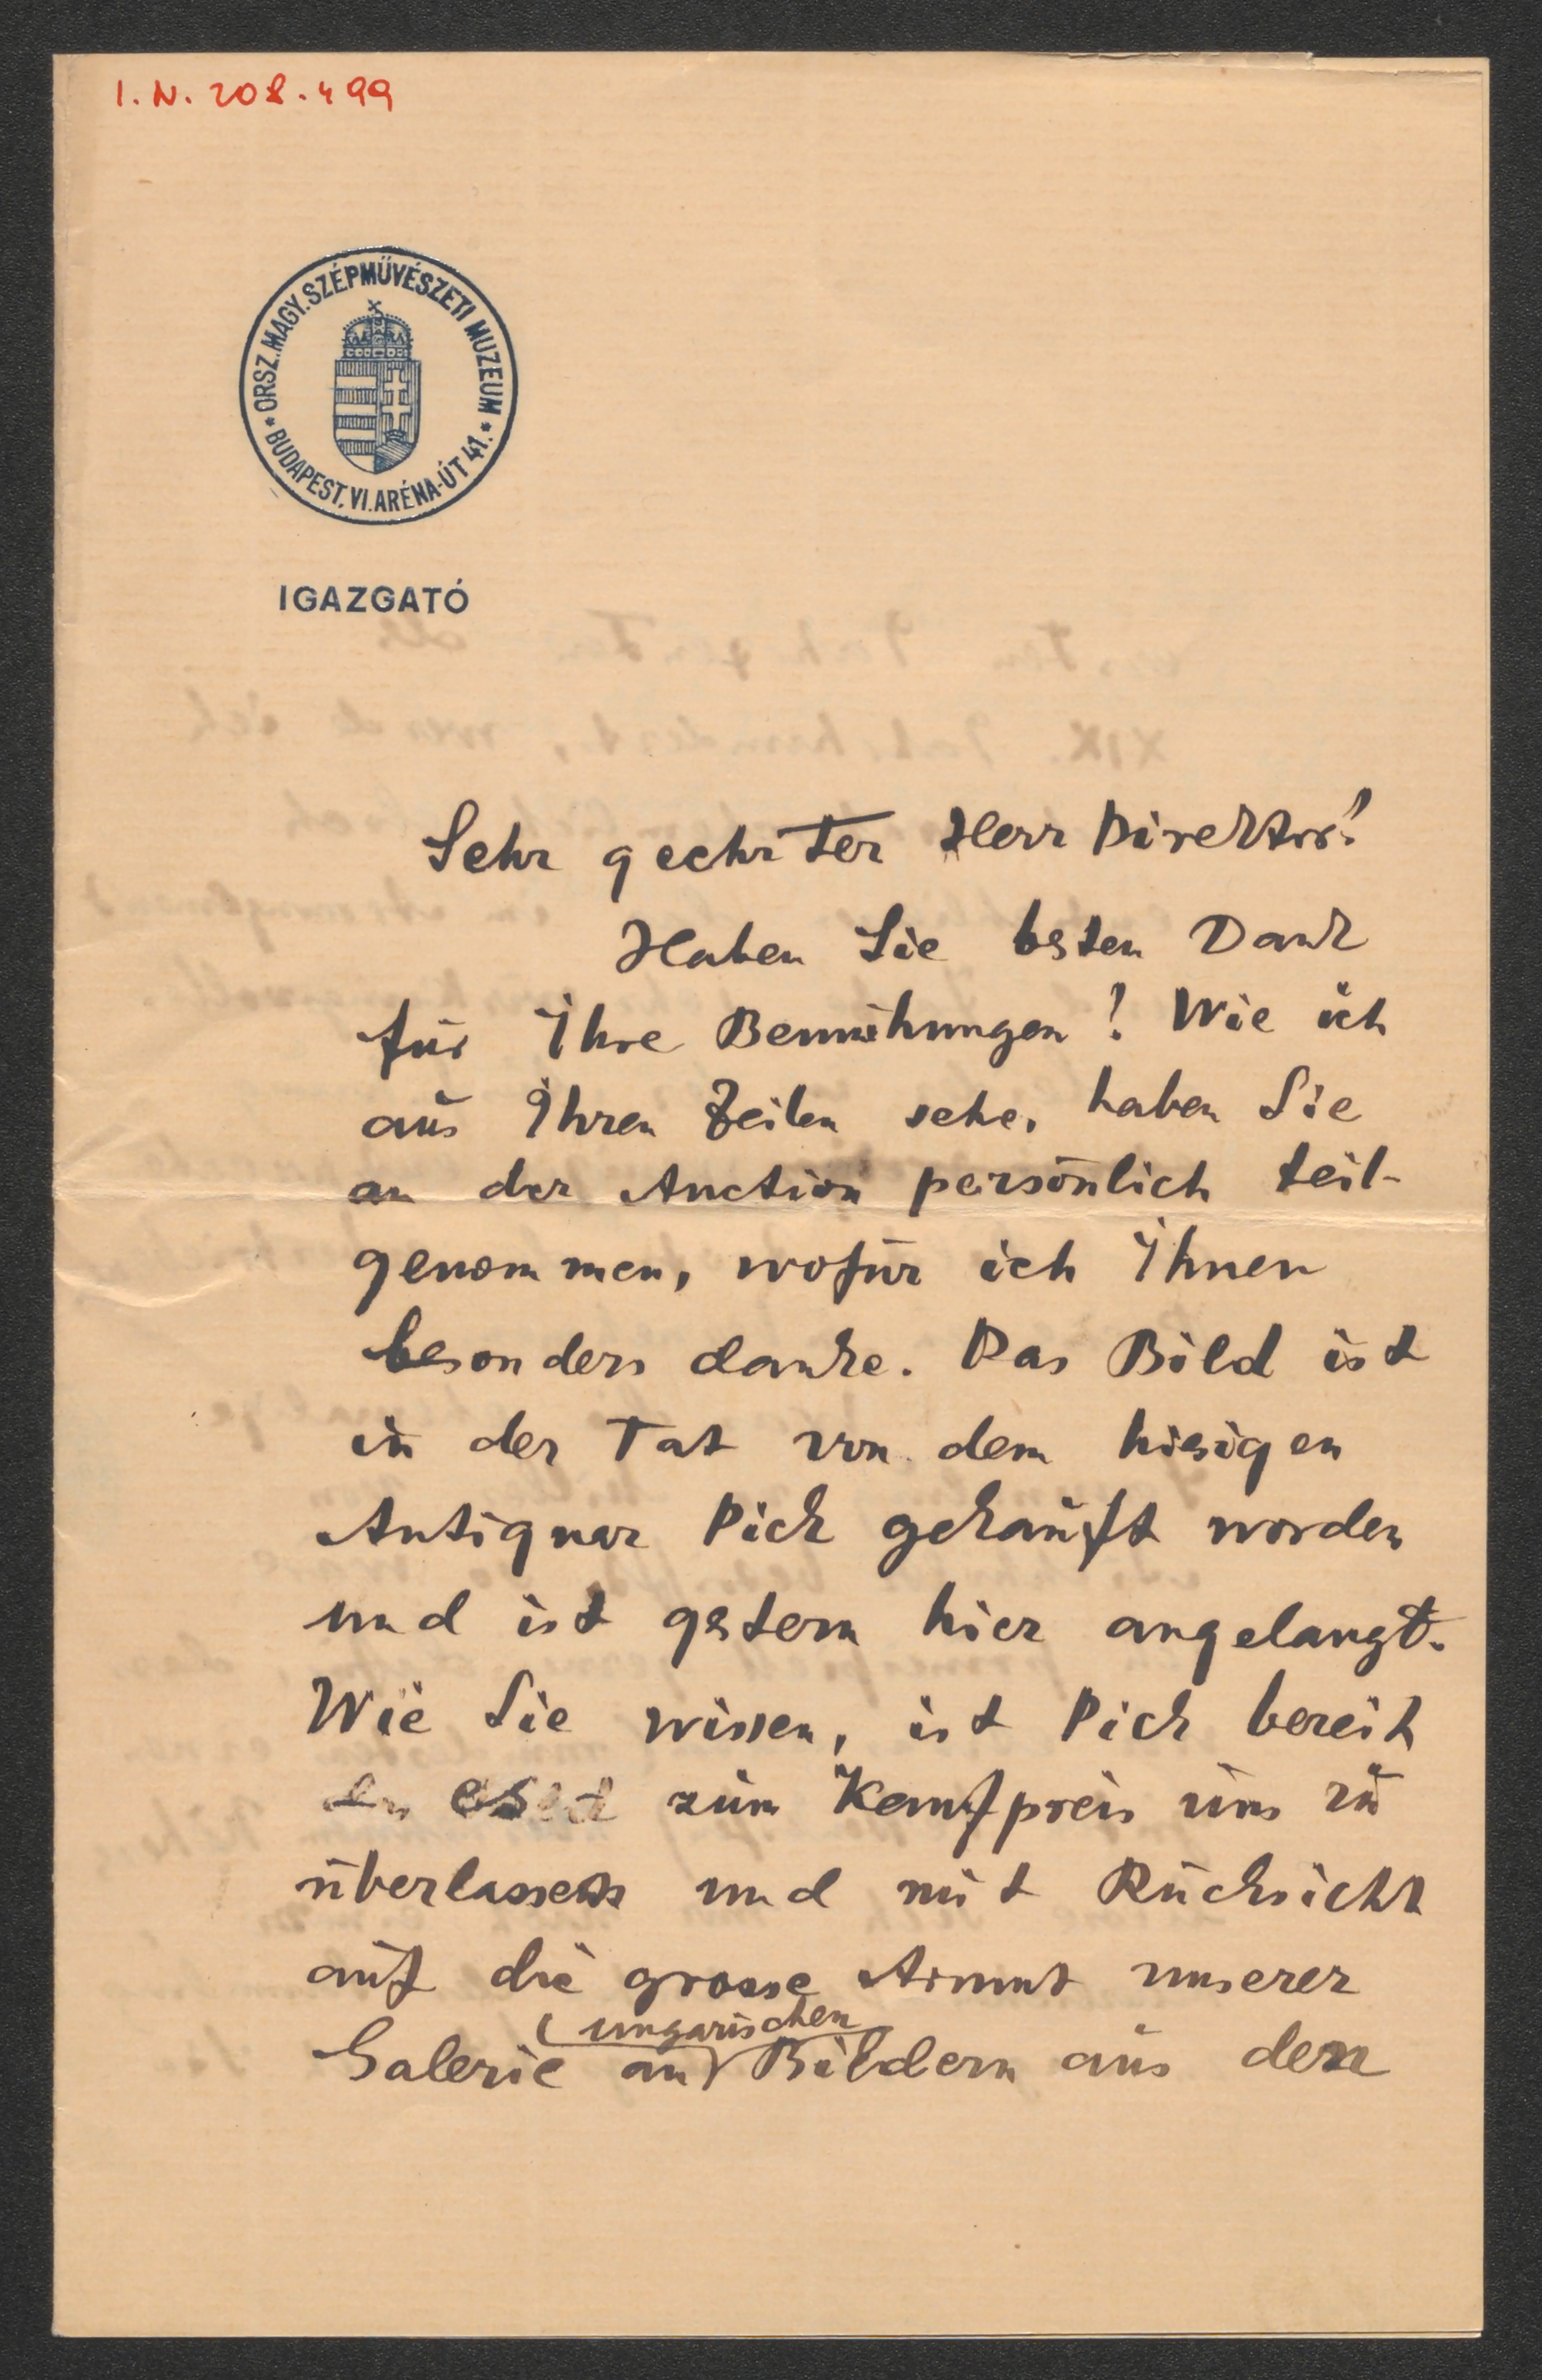 I.N. 208.499
* ORSZ. MAGY. SZÉPMŰVÉSZETI MUZEUM *
BUDAPEST, VI. ARÉNA-ÚT 41.
IGAZGATÓ
Sehr geehrter Herr Direktor!
Haben Sie besten Dank
für Ihre Bemühungen! Wie ich
aus Ihren Zeilen sehe, haben Sie
an der Auction persönlich teil-
genommen, wofür ich Ihnen
besonders danke. Das Bild ist
in der Tat von dem hiesigen
Antiquar Pick gekauft worden
und ist gestern hier angelangt.
Wie Sie wissen, ist Pick bereit
es zum Kaufpreis uns zu
überlassen und mit Rücksicht
auf die grosse Armut unserer
ungarischen
Galerie an Bildern aus den